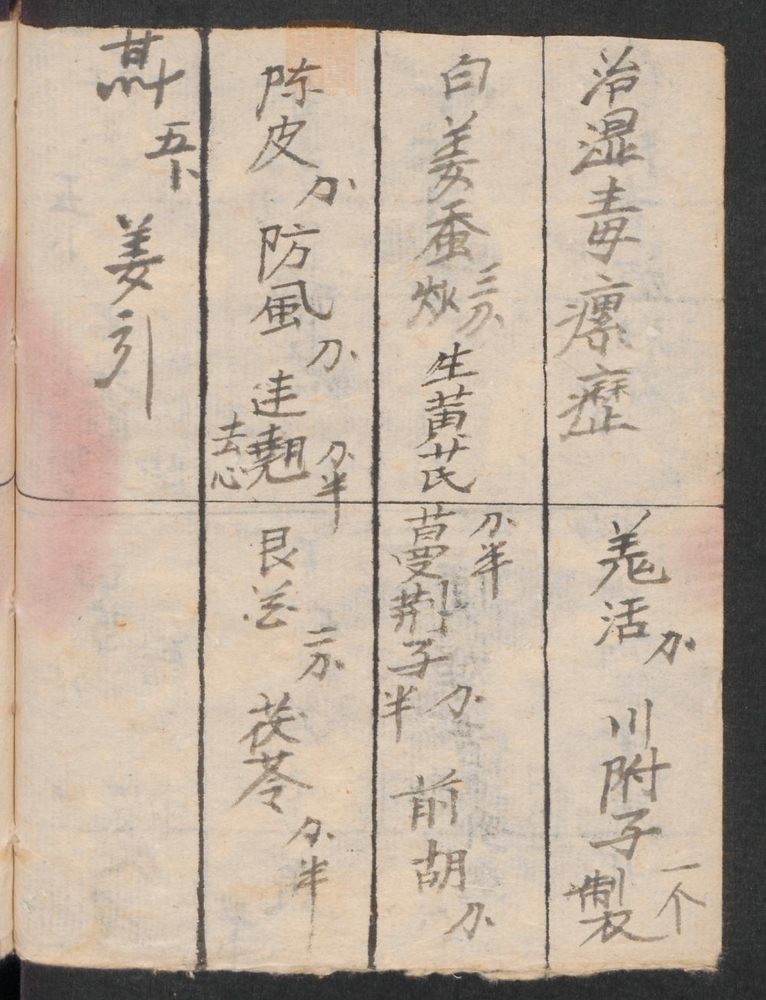 治湿毒瘰癧 羌活 分 川附子製 一个
白姜蚕 炒 三分 生黄芪 分半 蔓荆子 分半 前胡 分
陈皮 分 防風 分 连翹 去心 分半 艮花 二分 茯苓 分半
五卜 姜引